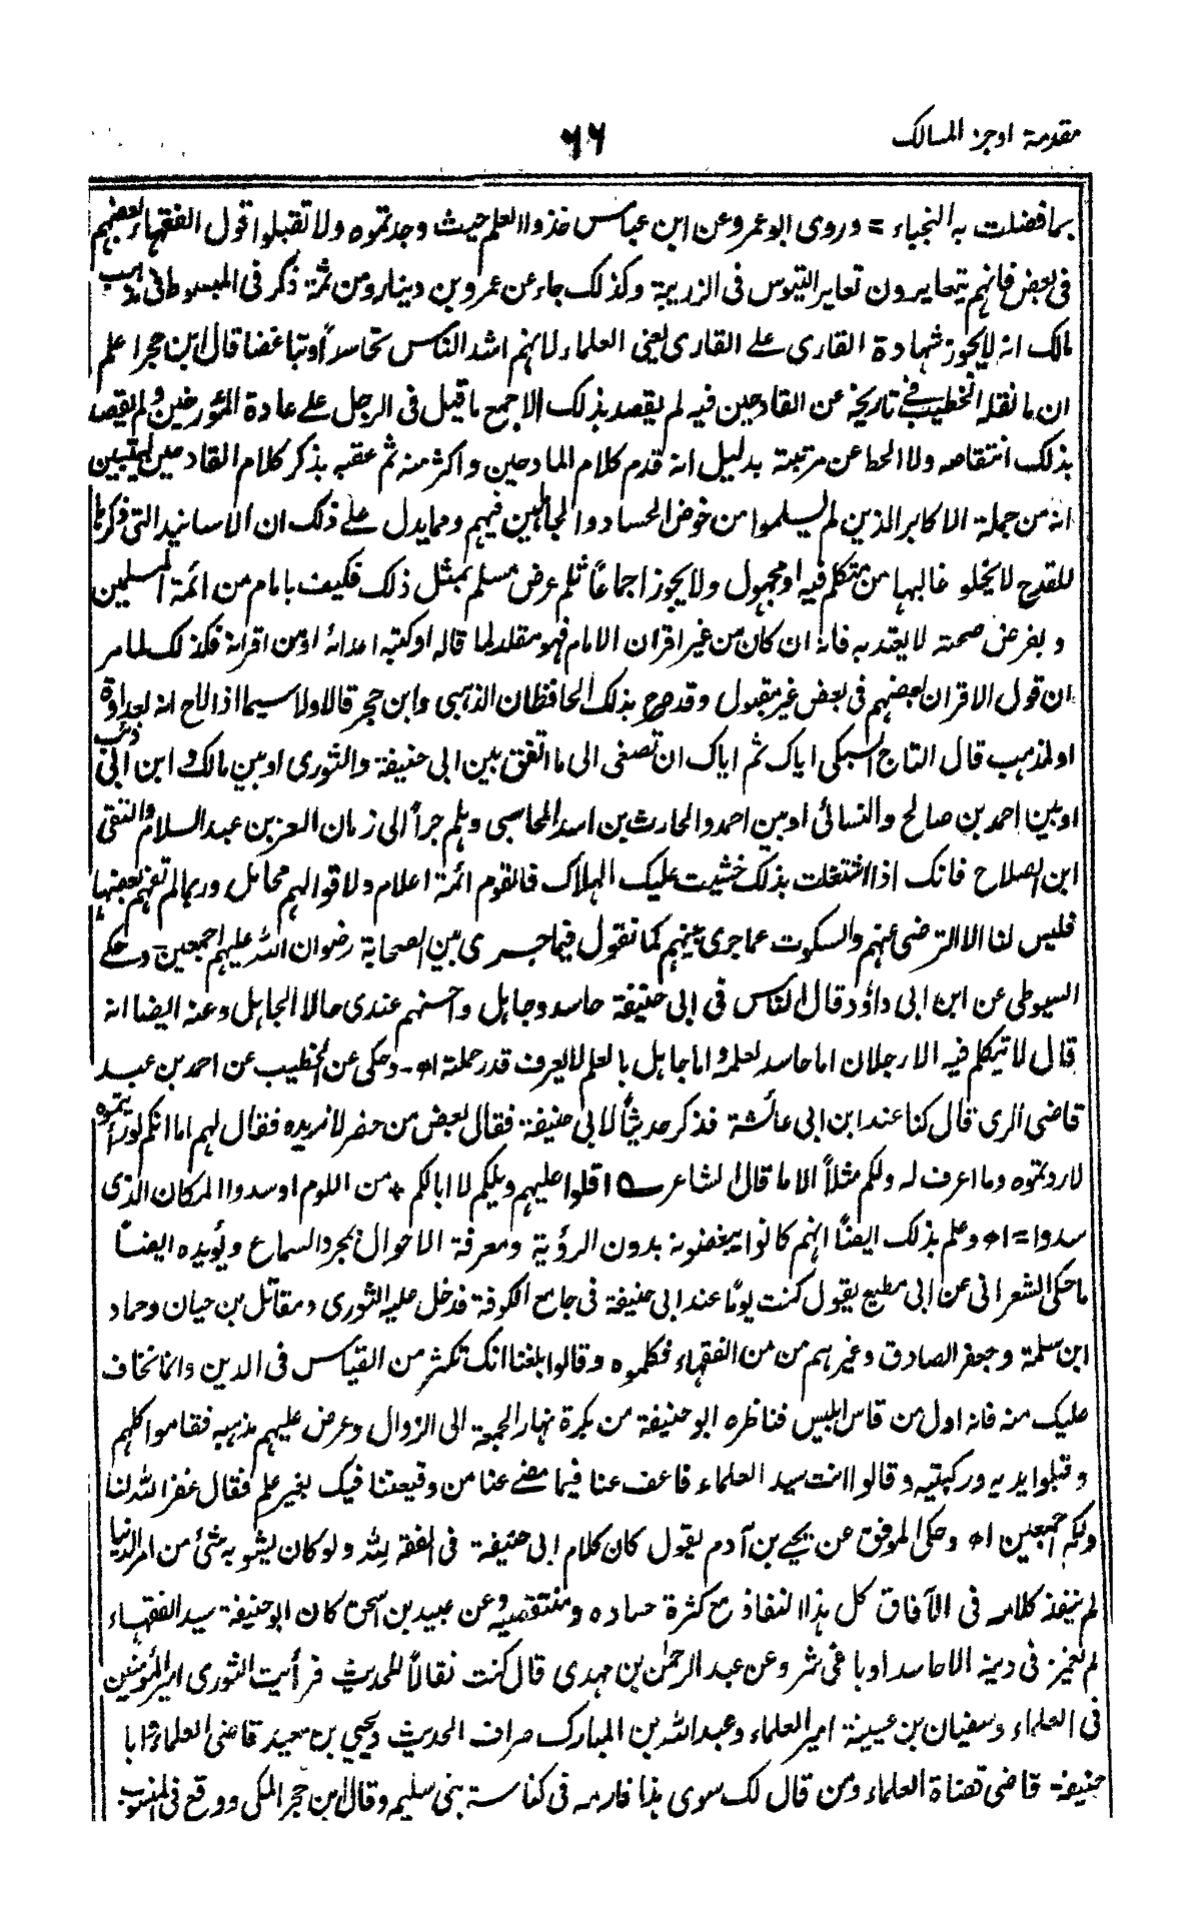 مقدمة اوجز المسالك
٦٦
بما فضلت به النجباء = وروى ابو عمرو عن ابن عباس خذوا العلم حيث وجدتموه ولا تقبلوا قول الفقهاء بعضهم
فى بعض فانهم يتعايرون تعاير التيوس فى الزريبة وكذلك جاء عن عمرو بن دينار ومن ثمة ذكر فى المبسوط فى مذهب
مالك انه لا يجوز شهادة القارى على القارى يعنى العلماء لانهم اشد الناس تحاسداً وتباغضا قال ابن حجر اعلم
ان ما نقله الخطيب فى تاريخه عن القادحين فيه لم يقصد بذلك الا جمع ما قيل فى الرجل على عادة المؤرخين ولم يقصد
بذلك انتقاصه ولا الحط عن مرتبته بدليل انه قدم كلام المادحين واكثر منه ثم عقبه بذكر كلام القادحين ليتبين
انه من جملة الاكابر الذين لم يسلموا من خوض الحساد والجاهلين فيهم ومما يدل على ذلك ان الاسانيد التى ذكرها
للقدح لا يخلو غالبها من متكلم فيه او مجهول ولا يجوز اجماعاً ثلم عرض مسلم بمثل ذلك فكيف بامام من ائمة المسلمين
وبفرض صحته لا يعتد به فانه ان كان من غير اقران الامام فهو مقلد لما قاله او كتبه اعدائه او من اقرانه فكذلك لما مر
ان قول الاقران بعضهم فى بعض غير مقبول وقد صرح بذلك الحافظان الذهبى وابن حجر قالا ولا سيما اذا لاح انه لعداوة
او لمذهب قال التاج السبكى اياك ثم اياك ان تصغى الى ما اتفق بين ابى حنيفة والثورى او بين مالك وابن ابى ذئب
او بين احمد بن صالح والنسائى او بين احمد والحارث بن اسد المحاسبى وهلم جراً الى زمان العز بن عبد السلام والتقى
ابن الصلاح فانك اذا اشتغلت بذلك خشيت عليك الهلاك فالقوم ائمة اعلام ولاقوالهم محامل وربما لم تفهم بعضها
فليس لنا الا الترضى عنهم والسكوت عما جرى بينهم كما نقول فيما جرى بين الصحابة رضوان الله عليهم اجمعين وحكى
السيوطى عن ابن ابى داؤد قال الناس فى ابى حنيفة حاسد وجاهل واحسنهم عندى حالا الجاهل وعنه ايضا انه
قال لا يتكلم فيه الا رجلان اما حاسد لعلمه واما جاهل بالعلم لا يعرف قدر حملته اھ - وحكى عن الخطيب عن احمد بن عبد
قاضى الرى قال كنا عند ابن ابى عائشة فذكر حديثاً لابى حنيفة فقال بعض من حضر لا نريده فقال لهم اما انكم لو رأيتموه
لاردتموه وما اعرف له ولكم مثلاً الا ما قال الشاعر ؎ اقلوا عليهم ويلكم لا ابا لكم + من اللوم او سدوا المكان الذى
سدوا = اھ وعلم بذلك ايضاً انهم كانوا يبغضونه بدون الرؤية ومعرفة الاحوال بمجرد السماع ويؤيده ايضاً
ما حكى الشعرانى عن ابى مطيع يقول كنت يوما عند ابى حنيفة فى جامع الكوفة فدخل عليه الثورى ومقاتل بن حيان وحماد
ابن سلمة وجعفر الصادق وغيرهم من من الفقهاء فكلموه وقالوا بلغنا انك تكثر من القياس فى الدين وانا نخاف
عليك منه فانه اول من قاس ابليس فناظره ابو حنيفة من بكرة نهار الجمعة الى الزوال وعرض عليهم مذهبه فقاموا كلهم
وقبلوا يديه وركبتيه وقالوا انت سيد العلماء فاعف عنا فيما مضى عنا من وقيعتنا فيك بغير علم فقال غفر الله لنا
ولكم اجمعين اھ وحكى الموفق عن يحيى بن آدم يقول كان كلام ابى حنيفة فى الفقه لله ولو كان يشوبه شئ من امر الدنيا
لم ينفذ كلامه فى الآفاق كل هذا النفاذ مع كثرة حساده ومنتقصيه وعن عبيد بن اسحق كان ابو حنيفة سيد الفقهاء
لم يغمز فى دينه الا حاسد او باغى شر وعن عبد الرحمن بن مهدى قال كنت نقالاً للحديث فرأيت الثورى امير المؤمنين
فى العلماء وسفيان بن عيينة امير العلماء وعبد الله بن المبارك صراف الحديث ويحيى بن سعيد قاضى العلماء وابا
حنيفة قاضى قضاة العلماء ومن قال لك سوى هذا فارمه فى كناسة بنى سليم وقال ابن حجر المكى ووقع فى